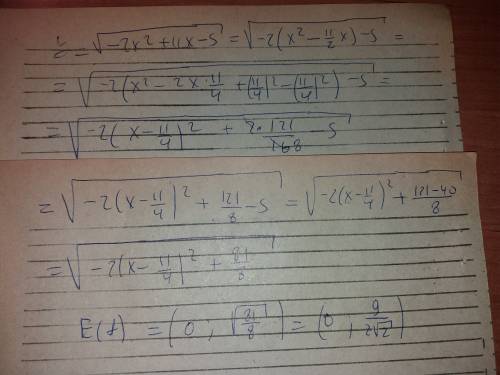 = √(-2x² + 11x - 5) = √(-2(x² - 11/2 x) - 5) =
= √(-2(x² - 2x · 11/4 + (11/4)² - (11/4)²) - 5) =
= √(-2(x - 11/4)² + 2 · 121/168 - 5)
= √(-2(x - 11/4)² + 121/8 - 5) = √(-2(x - 11/4)² + (121-40)/8)
= √(-2(x - 11/4)² + 81/8)
E(f) = (0 , √(81/8)) = (0, 9/(2√2))